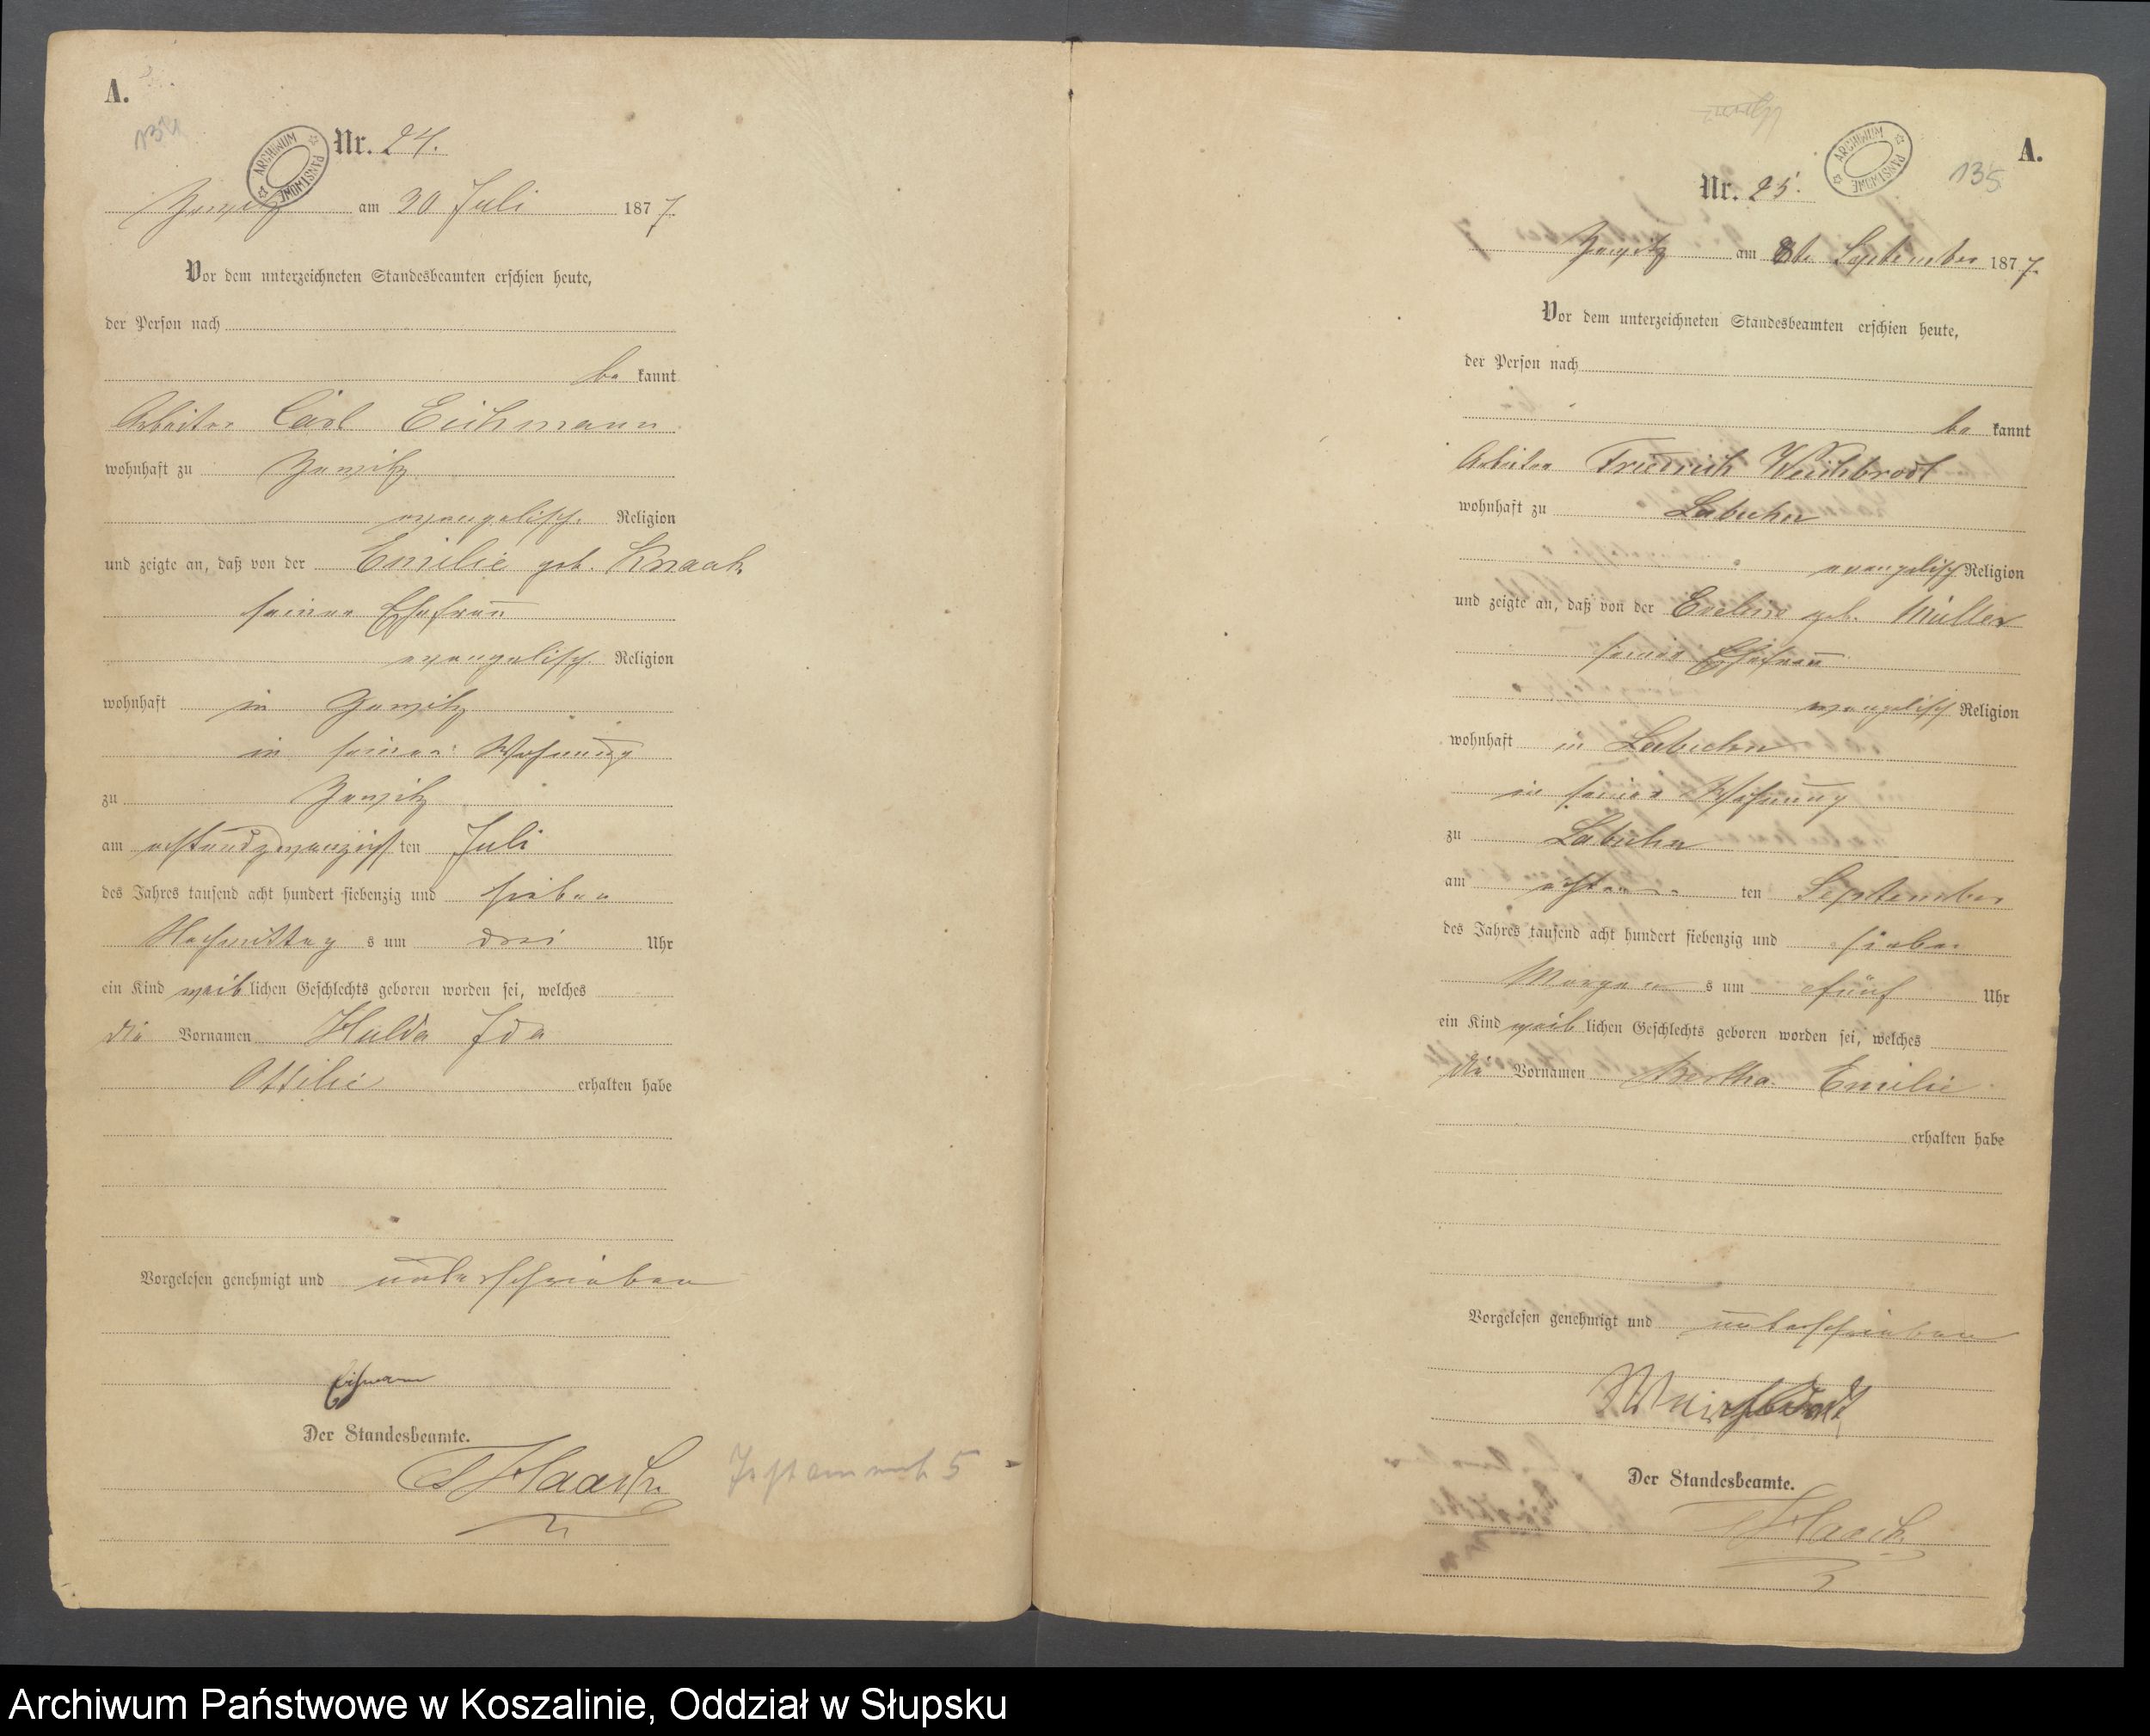 A.
Nr. 24.
ARCHIWUM PAŃSTWOWE
am 30 Juli 1877.
Vor dem unterzeichneten Standesbeamten erschien heute,
der Person nach
be kannt
Arbeiter Carl Eichmann
wohnhaft zu
evangelische Religion
und zeigte an, daß von der Emilie geb. Knaack
seiner Ehefrau
evangelisch Religion
wohnhaft in
in seiner Wohnung
zu
am achtundzwanzigsten Juli
des Jahres tausend acht hundert siebenzig und sieben
Nachmittag s um drei Uhr
ein Kind weib lichen Geschlechts geboren worden sei, welches
die Vornamen Hulda Ida
Ottilie erhalten habe
Vorgelesen genehmigt und unterschrieben
Eichmann
Der Standesbeamte.
Haack
A.
135
Nr. 25.
ARCHIWUM PAŃSTWOWE
am 8te September 1877.
Vor dem unterzeichneten Standesbeamten erschien heute,
der Person nach
be kannt
Arbeiter Friedrich Weichbrodt
wohnhaft zu Labuhn
evangelisch Religion
und zeigte an, daß von der geb. Müller
seiner Ehefrau
evangelisch Religion
wohnhaft in Labuhn
in seiner Wohnung
zu Labuhn
am achten ten September
des Jahres tausend acht hundert siebenzig und sieben
Morgen s um fünf Uhr
ein Kind weib lichen Geschlechts geboren worden sei, welches
die Vornamen Bertha Emilie
erhalten habe
Vorgelesen genehmigt und unterschrieben
Weichbrodt
Der Standesbeamte.
Haack
Archiwum Państwowe w Koszalinie, Oddział w Słupsku